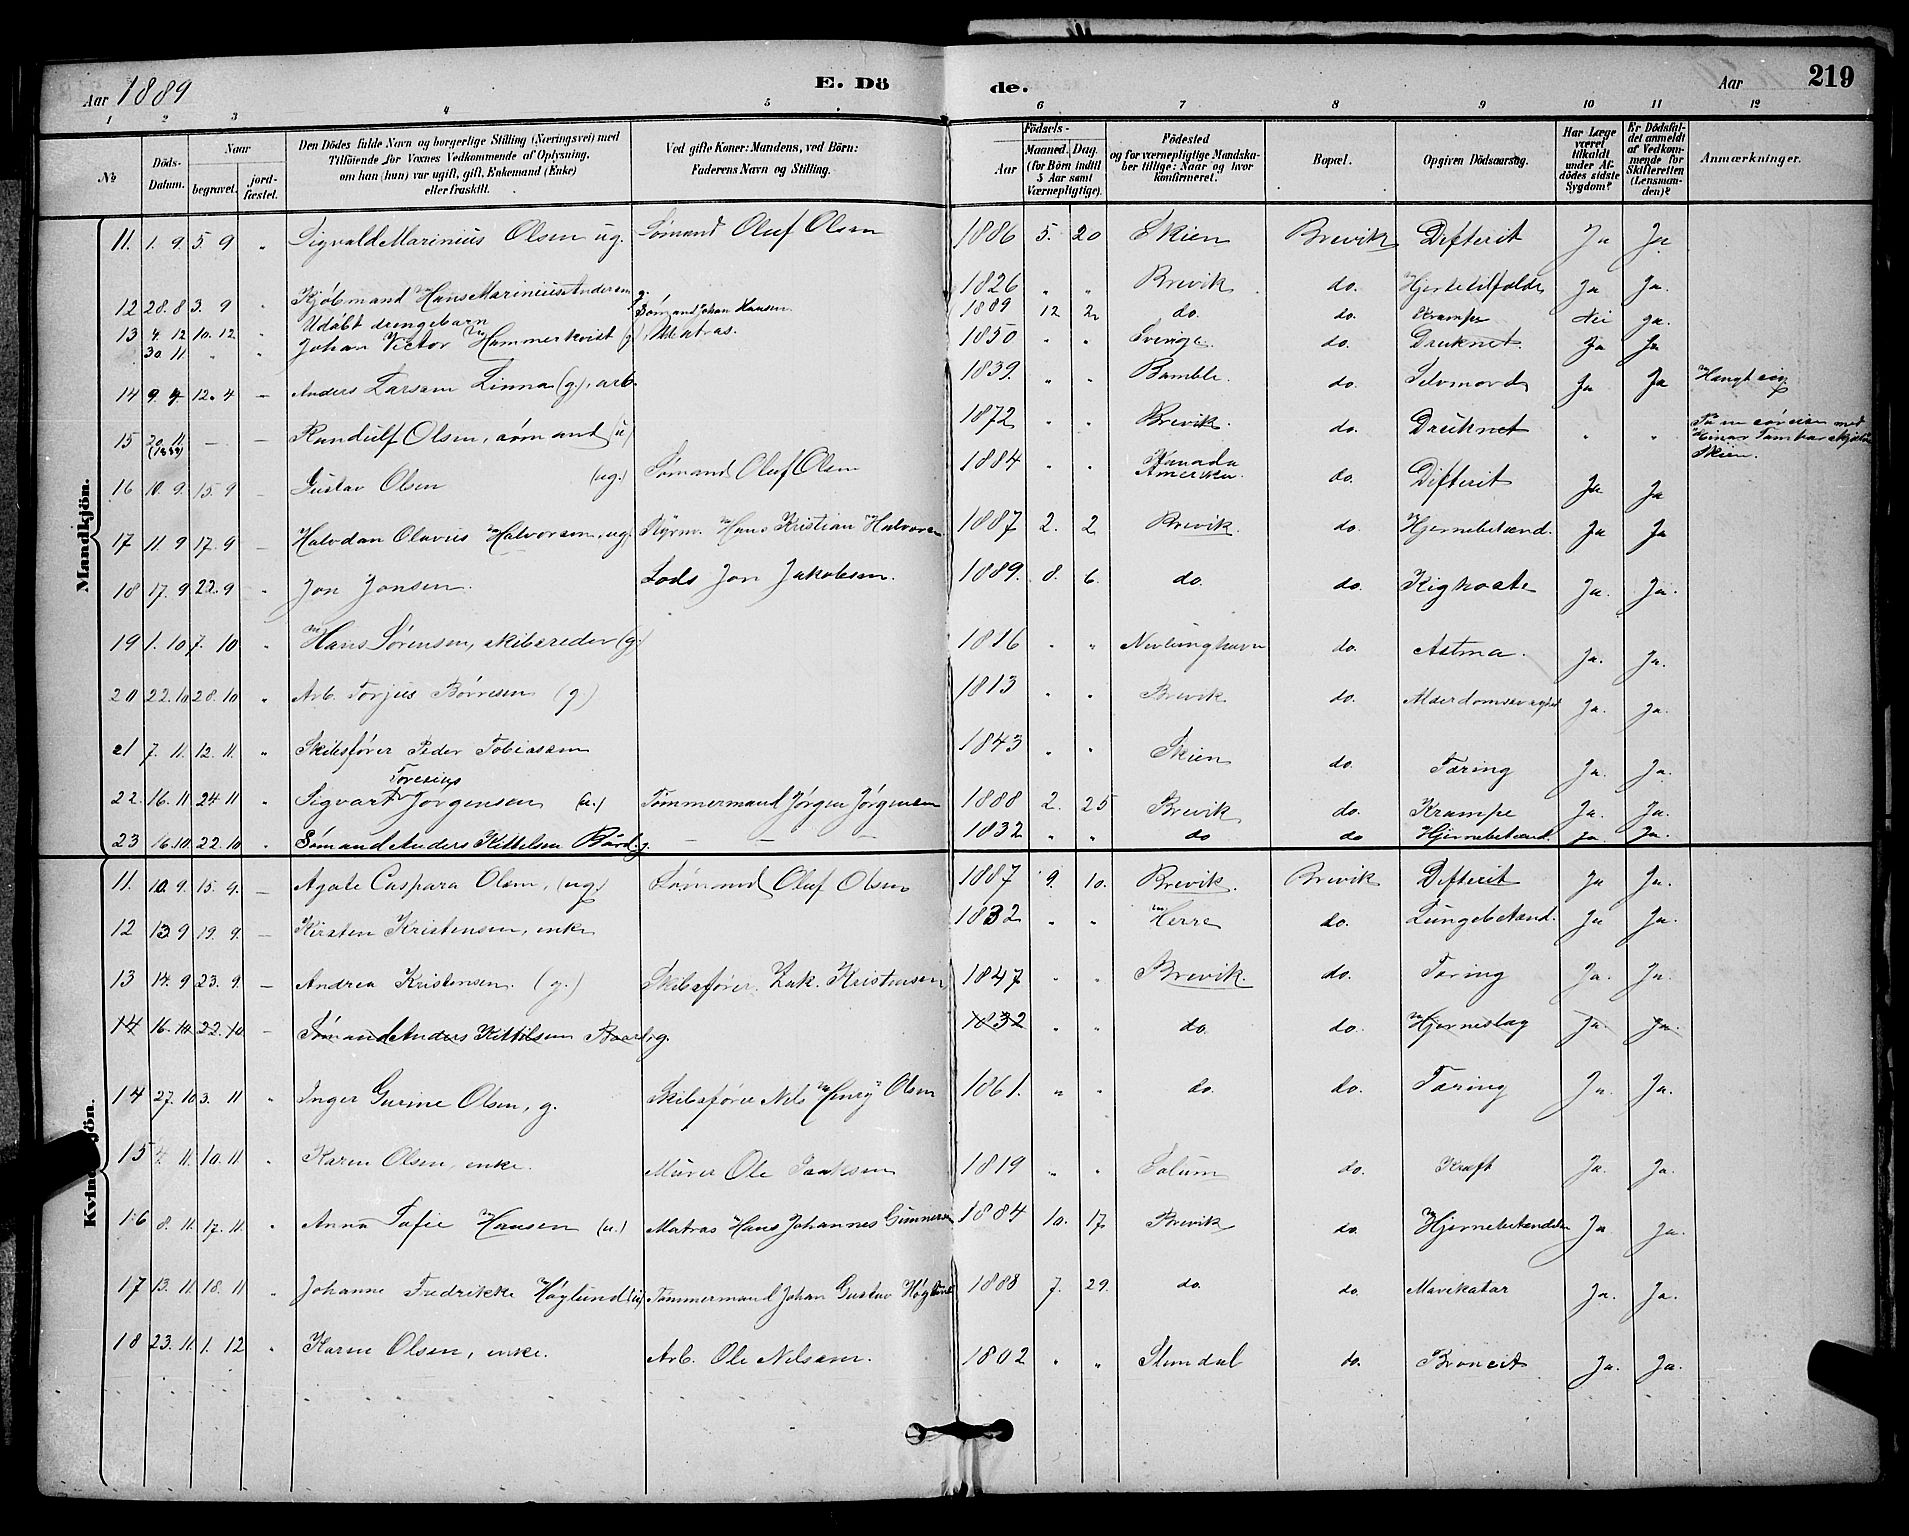 Aar 1889 E. Dö de. Aar 219
1 2 3 4 5 6 7 8 9 10 11 12
No
Döds-Datum.
Naar
begravet.
jordfæstet.
Den Dödes fulde Navn og borgerlige Stilling (Næringsvei) med
Tilföiende for Voxnes Vedkommende af Oplysning,
om han (hun) var ugift, gift, Enkemand (Enke)
eller fraskilt.
Ved gifte Koner: Mandens, ved Börn:
Faderens Navn og Stilling.
Födsels-
Aar
Maaned.
Dag.
(for Börn indtil 5 Aar samt Værnepligtige).
Födested
og for værnepligtige Mandskaber tillige: Naar og hvor konfirmeret.
Bopæl.
Opgiven Dödsaarsag.
Har Læge været tilkaldt under Afdödes sidste Sygdom?
Er Dödsfaldet anmeldt af Vedkommende for Skifteretten (Lensmanden)?
Anmærkninger.
Mandkjön.
11. 1. 9. 5. 9 " Sigvald Marinius Olsen ug. Sømand Oluf Olsen 1886 5. 20 Skien Brevik Difterit Ja Ja.
12 28. 8 3. 9 " Kjøbmand Hans Marinius Andersen g. 1826 " " Brevik do. Hjertetilfælde Ja Ja.
13 4. 12 10. 12 " Udøbt drengebarn Sømand Johan Hansen 1889 12 2 do. do. Krampe Nei Ja.
30 11. " " Johan Victor Hammerkvist (g), Matros. 1850 " " do. Druknet. Ja Ja
14 9. 4. 12. 4 — Anders Larsen Linna (g.), arb. 1839. " " Bamble. do. Selvmord Ja Ja Hængt sig
15 20. 11. (1888) — — Randulf Olsen, sømand (u) 1872 " " Brevik. do. Druknet " " Skien.
16 10. 9. 15. 9 — Gustav Olsen (ug.) Sømand Oluf Olsen 1884 " " Kanada Amerika. do. Difterit Ja Ja
17 11. 9 17. 9 — Halvdan Olavius Halvorsen, ug. Styrm. Hans Kristian Halvorsen 1887 2. 2 Brevik. do. Hjernebetænd. Ja Ja
18 17. 9 22. 9 " Jon Jonsen. Lods Jon Jakobsen. 1889. 8. 6. do. do. Kighoste Ja. Ja.
19 1. 10 7. 10 " Hans Sørensen, skibsreder (g.) 1816 " " Nevlunghavn do. Astma. Ja. Ja.
20 22. 10 28. 10 " Arb. Torjus Børresen (g) 1813 " " Brevik do. Alderdomssvaghed Ja. Ja.
21 7. 11. 12. 11. " Skibsfører Peder Tobiasen 1843 " " Skien do. Tæring Ja. Ja.
22. 16. 11. 24 11 " Sigvart Toresius Jørgensen (u.) Tømmermand Jørgen Jørgensen 1888 2. 25 Brevik do. Krampe Ja. Ja.
23 16. 10. 22. 10 " Sømand Anders Kittelsen Bård. g. — — — 1832 " " do do Hjernebetænd. Ja. Ja.
Kvindekjön.
11. 10. 9. 15. 9. — Agate Caspara Olsen, (ug.) Sømand Oluf Olsen 1887 9. 10. Brevik. Brevik Difterit Ja Ja.
12 13. 9 19. 9. — Kirsten Kristensen, enke 1832 " " Herre do. Lungebetænd. Ja Ja.
13 14. 9 23. 9. — Andrea Kristensen. (g.) Skibsfører. Zak. Kristensen 1847 " " Brevik. do. Tæring Ja. Ja.
14 16. 10. 22. 10 — Sømand Anders Kittilsen Baard. g. 1832 " " do. do. Hjerneslag Ja Ja.
14 27. 10 3. 11 " Inger Gurine Olsen, g. Skibsfører Nils Henry Olsen 1861. " " do. do. Tæring Ja. Ja.
15 4. 11. 10. 11 " Karen Olsen, enke. Murer Ole Isaksen 1819 " " Solum do. Kræft Ja. Ja.
16 8. 11. 17. 11. " Anna Sofie Hansen (u.) Matros Hans Johannes Gunnersen 1884 10. 17 Brevik do. Hjernebetændelse Ja Ja.
17 13. 11. 18. 11 " Johanne Fredrikke Høglund (u) Tømmermand Johan Gustav Høglund 1888 7. 29. do. do. Mavekatar Ja. Ja.
18 23. 11. 1. 12 " Karen Olsen, enke. Arb. Ole Nilsen. 1802 " " do. Broncit Ja. Ja.